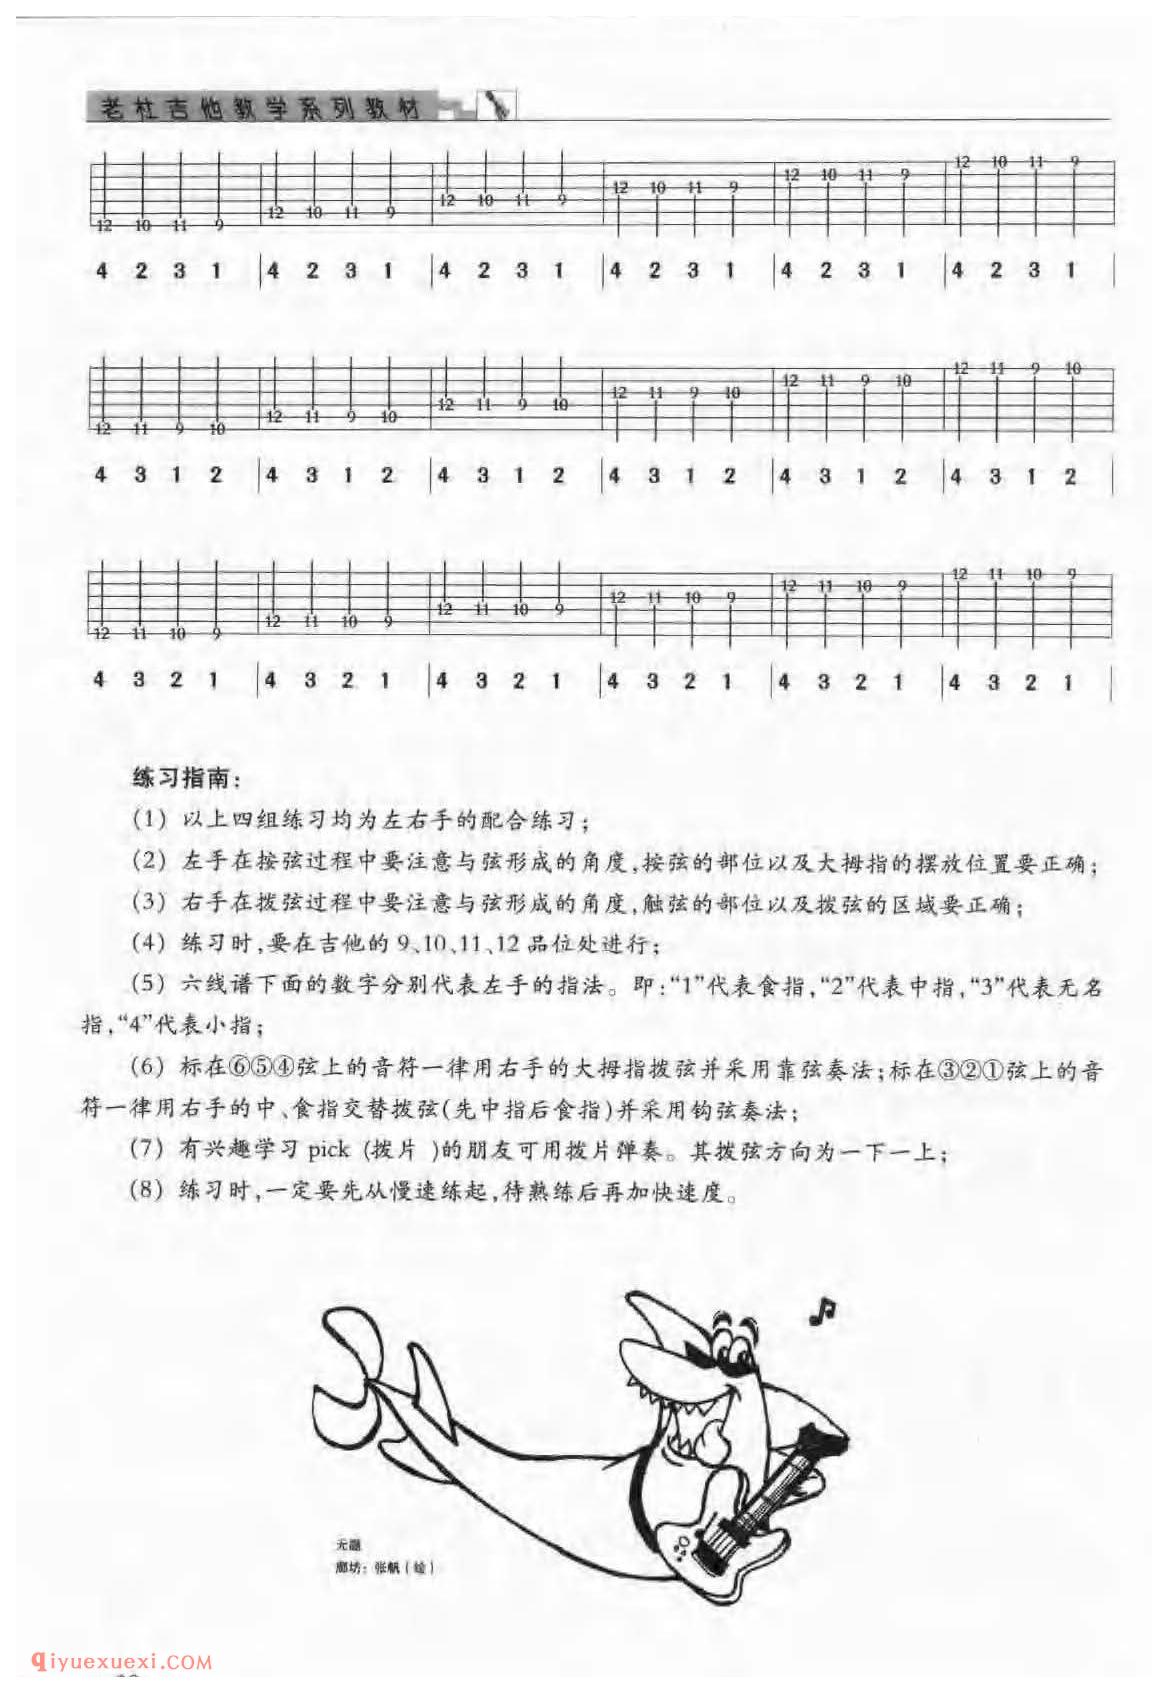 老杜吉他教学系列教材
12 10 11 9 12 10 11 9 12 10 11 9 12 10 11 9 12 10 11 9 12 10 11 9
4 2 3 1 4 2 3 1 4 2 3 1 4 2 3 1 4 2 3 1 4 2 3 1
12 11 9 10 12 11 9 10 12 11 9 10 12 11 9 10 12 11 9 10 12 11 9 10
4 3 1 2 4 3 1 2 4 3 1 2 4 3 1 2 4 3 1 2 4 3 1 2
12 11 10 9 12 11 10 9 12 11 10 9 12 11 10 9 12 11 10 9 12 11 10 9
4 3 2 1 4 3 2 1 4 3 2 1 4 3 2 1 4 3 2 1 4 3 2 1
练习指南:
(1) 以上四组练习均为左右手的配合练习;
(2) 左手在按弦过程中要注意与弦形成的角度,按弦的部位以及大拇指的摆放位置要正确;
(3) 右手在拨弦过程中要注意与弦形成的角度,触弦的部位以及拨弦的区域要正确;
(4) 练习时,要在吉他的 9、10、11、12 品位处进行;
(5) 六线谱下面的数字分别代表左手的指法。即:“1”代表食指,“2”代表中指,“3”代表无名
指,“4”代表小指;
(6) 标在⑥⑤④弦上的音符一律用右手的大拇指拨弦并采用靠弦奏法;标在③②①弦上的音
符一律用右手的中、食指交替拨弦(先中指后食指)并采用钩弦奏法;
(7) 有兴趣学习 pick (拨片 )的朋友可用拨片弹奏。其拨弦方向为一下一上;
(8) 练习时,一定要先从慢速练起,待熟练后再加快速度。
无题
廊坊: 张帆(绘)
qiyuexuexi.COM